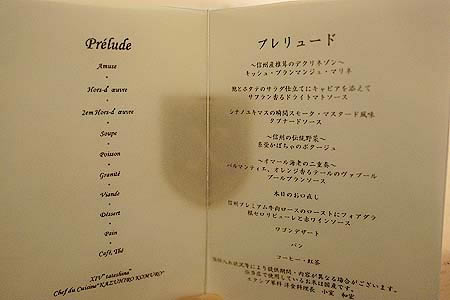 Prélude
Amuse
Hors-d œuvre
2em Hors-d œuvre
Soupe
Poisson
Granité
Viande
Déssert
Pain
Café, Thé
XIV "tateshina"
Chef du Cuisine "KAZUHIRO KOMURO"
プレリュード
~信州産椎茸のデクリネゾン~
キッシュ・ブランマンジュ・マリネ
鮑とホタテのサラダ仕立てにキャビアを添えて
サフラン香るドライトマトソース
シナノユキマスの瞬間スモーク・マスタード風味
タプナードソース
~信州の伝統野菜~
在来かぼちゃのポタージュ
~オマール海老の二重奏~
パルマンティエ、オレンジ香るテールのヴァプール
ブールブランソース
本日のお口直し
信州プレミアム牛肉ロースのローストにフォアグラ
根セロリピューレと赤ワインソース
ワゴンデザート
パン
コーヒー・紅茶
仕入れ状況等により提供期間・内容が異なる場合がございます。
当店で使用しているお米は国産です。
エクシブ蓼科 洋食料理長 小室 和宏